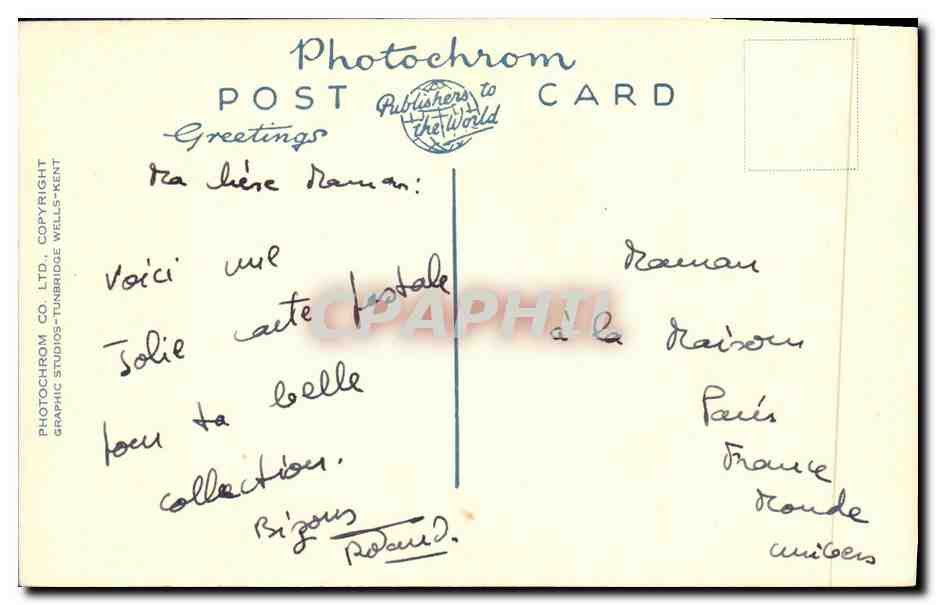 Photochrom
POST CARD
Publishers to
the World
Greetings
PHOTOCHROM CO. LTD., COPYRIGHT
GRAPHIC STUDIOS-TUNBRIDGE WELLS-KENT
Ma chère Maman:
Voici une
Jolie carte postale
pour ta belle
collection.
Bizous
Roland.
Maman
à la Maison
Paris
France
Monde
univers
CPAPHIL